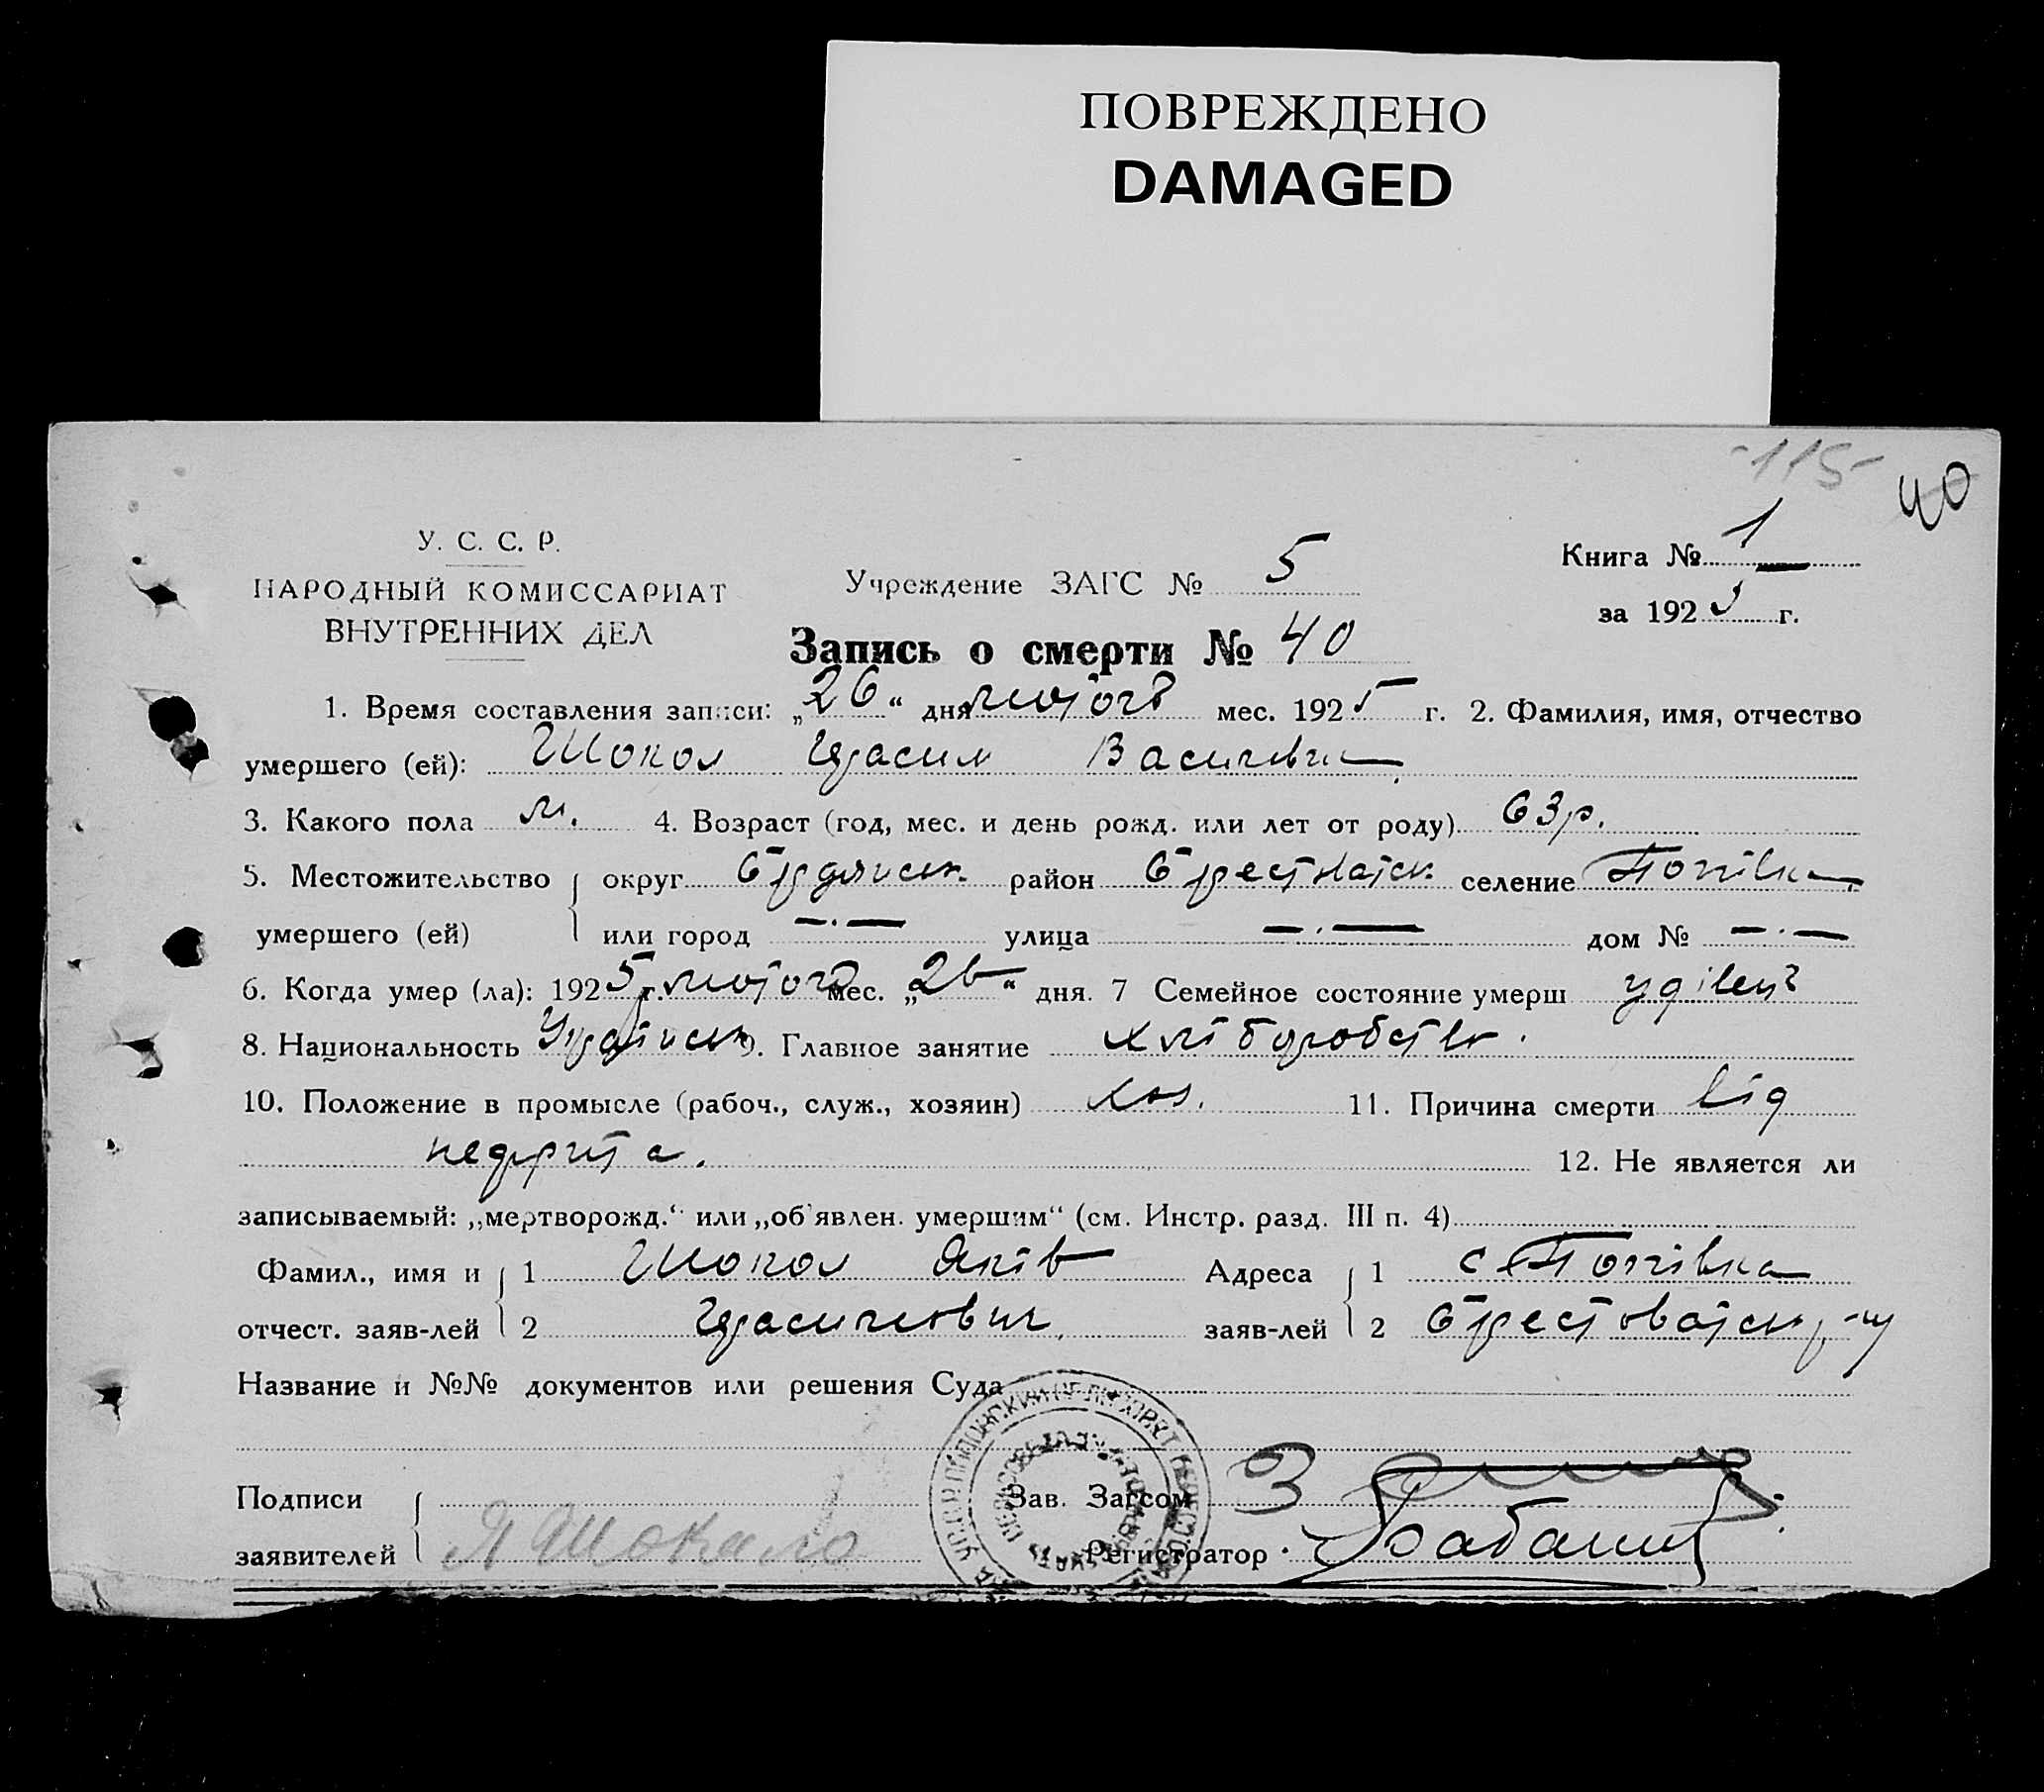 ПОВРЕЖДЕНО
DAMAGED
-115-
40
У. С. С. Р.
НАРОДНЫЙ КОМИССАРИАТ
ВНУТРЕННИХ ДЕЛ
Учреждение ЗАГС № 5
Книга № 1
за 1925 г.
Запись о смерти № 40
1. Время составления записи: „26“ дня лютого мес. 1925 г. 2. Фамилия, имя, отчество
умершего (ей): Шокол Герасим Василевич
3. Какого пола м. 4. Возраст (год, мес. и день рожд. или лет от роду) 63 р.
5. Местожительство округ район селение Попівка
умершего (ей) или город —.— улица —.— дом № —.—
6. Когда умер (ла): 1925 г. лютого мес. „26“ дня. 7 Семейное состояние умерш удівец
8. Национальность Україн 9. Главное занятие хліборобство.
10. Положение в промысле (рабоч., служ., хозяин) хоз. 11. Причина смерти від
нефрита. 12. Не является ли
записываемый: „мертворожд.“ или „об'явлен. умершим“ (см. Инстр. разд. III п. 4)
Фамил., имя и 1 Шокол Яків Адреса 1 с Попівка
отчест. заяв-лей 2 Герасимович заяв-лей 2
Название и №№ документов или решения Суда
Подписи Зав. Загсом
заявителей Я Шокало Регистратор